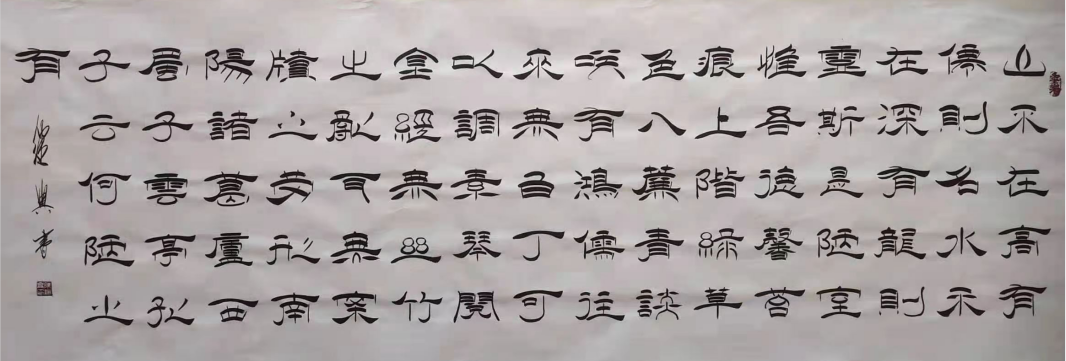 山不在高有
僊則名水不
在深有龍則
靈斯是陋室
惟吾德馨苔
痕上階綠草
色入簾青談
咲有鴻儒往
來無白丁可
以調素琴閱
金經無絲竹
之亂耳無案
牘之勞形南
陽諸葛廬西
蜀子雲亭孔
子云何陋之
有
興書